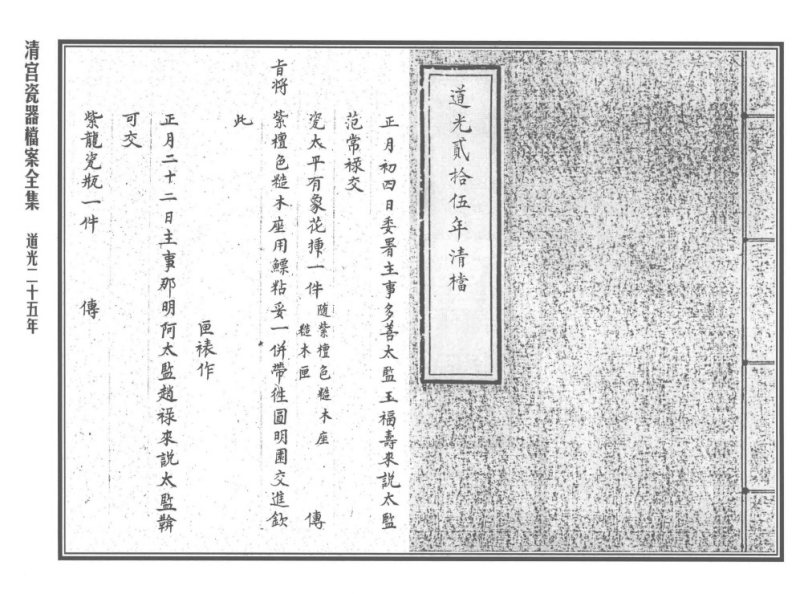 道光貳拾伍年清檔
正月初四日委署主事多善太監玉福壽來說太監
范常祿交
瓷太平有象花揷一件隨紫檀色糙木座糙木匣 傳
旨將
紫檀色糙木座用鰾粘妥一併帶往圓明園交進欽
此
匣裱作
正月二十二日主事那明阿太監趙祿來說太監韓
可交
紫龍瓷瓶一件 傳
清宮瓷器檔案全集 道光二十五年